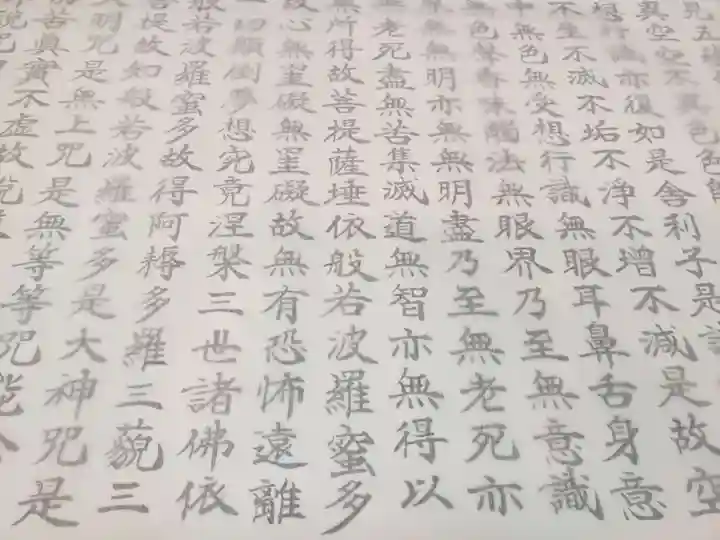 見五蘊
異空空不異色色
想行識亦復如是舍利子是諸
不生不滅不垢不淨不增不減是故空
中無色無受想行識無眼耳鼻舌身意
無色聲香味觸法無眼界乃至無意識
無明亦無無明盡乃至無老死亦
老死盡無苦集滅道無智亦無得以
無所得故菩提薩埵依般若波羅蜜多
故心無罣礙無罣礙故無有恐怖遠離
一切顛倒夢想究竟涅槃三世諸佛依
般若波羅蜜多故得阿耨多羅三藐三
菩提故知般若波羅蜜多是大神咒是
大明咒是無上咒是無等等咒能
苦真實不虛故說